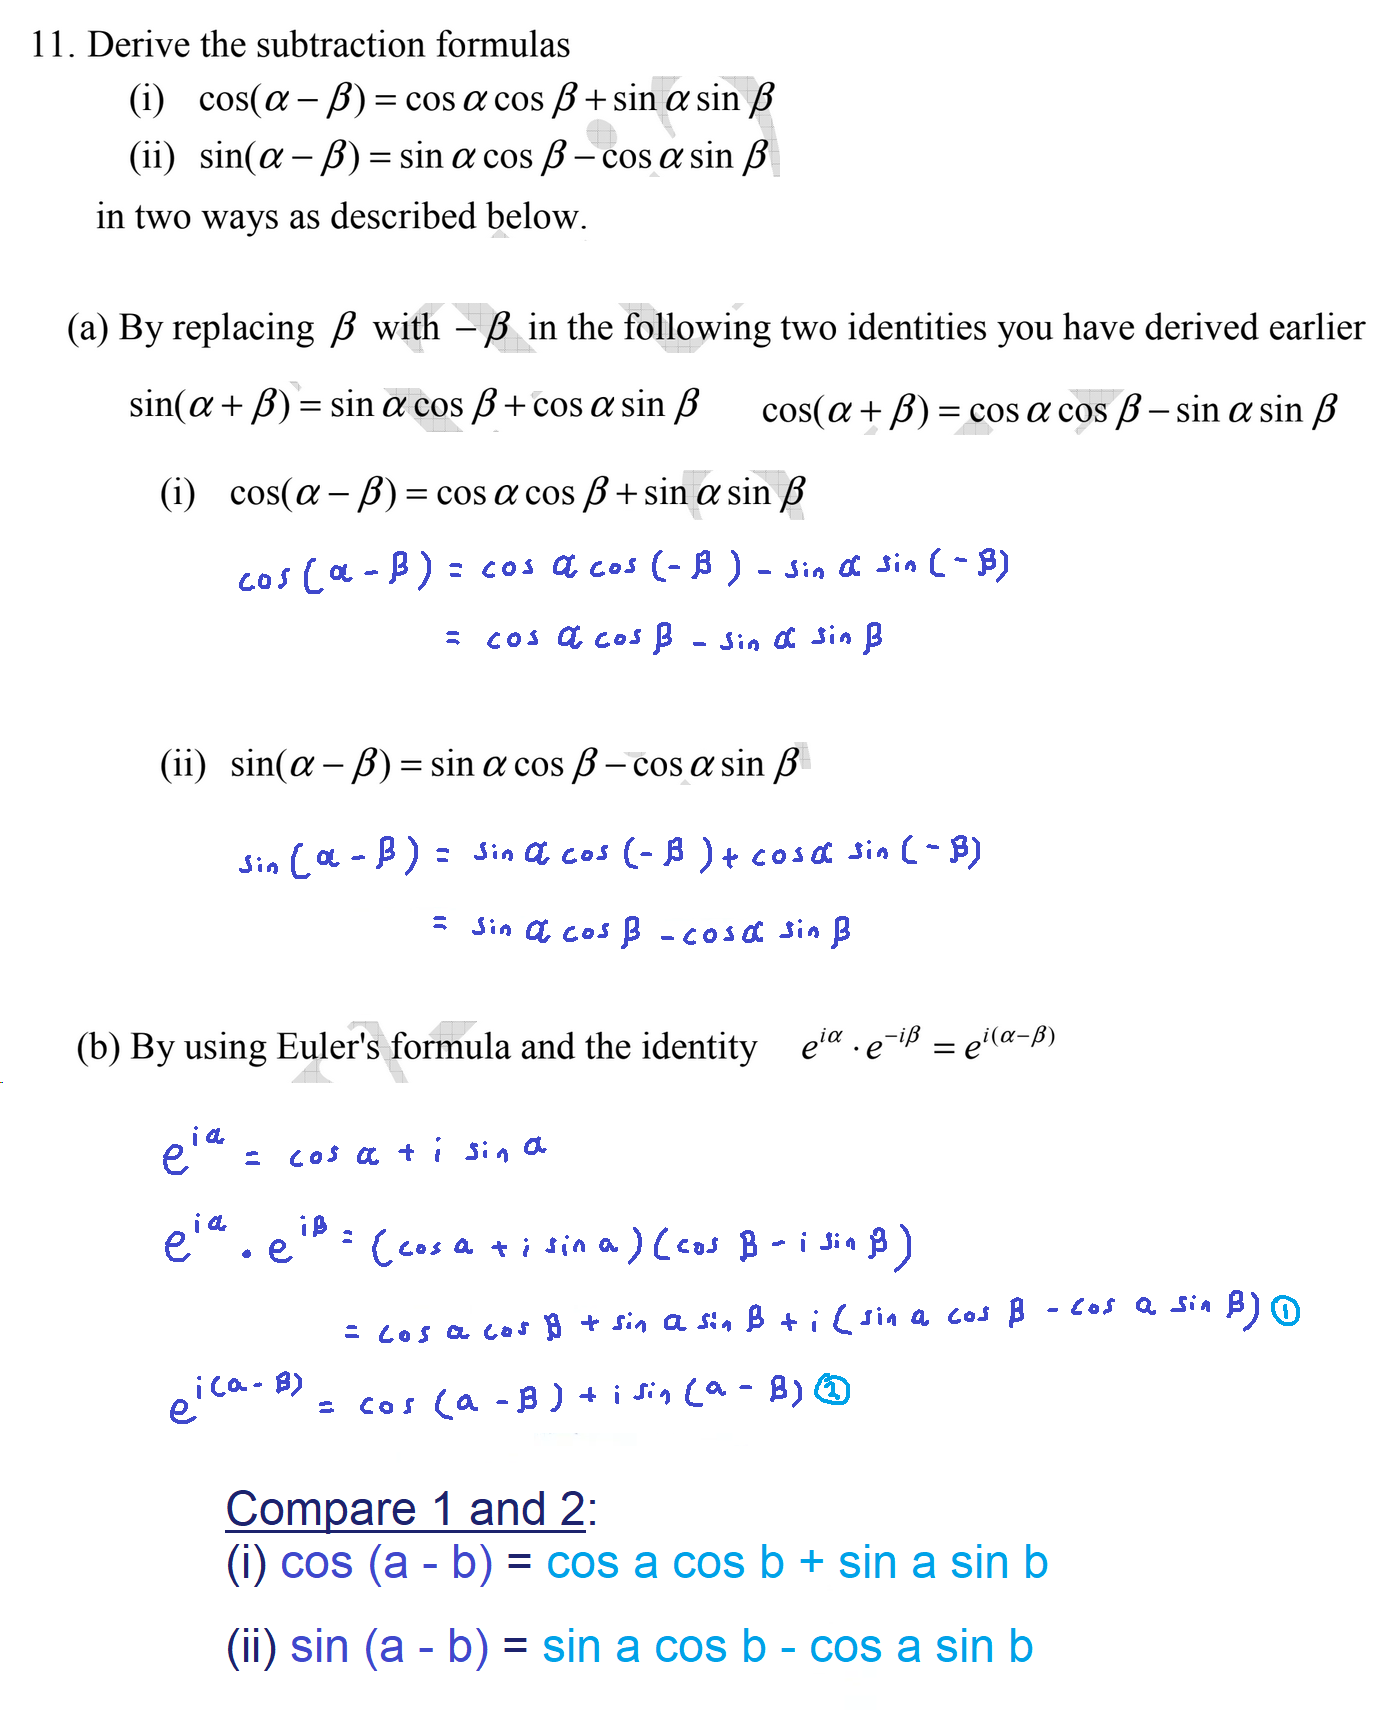 11. Derive the subtraction formulas
(i) cos(α − β) = cos α cos β + sin α sin β
(ii) sin(α − β) = sin α cos β − cos α sin β
in two ways as described below.
(a) By replacing β with − β in the following two identities you have derived earlier
sin(α + β) = sin α cos β + cos α sin β cos(α + β) = cos α cos β − sin α sin β
(i) cos(α − β) = cos α cos β + sin α sin β
cos (α - β) = cos α cos (-β) - sin α sin (-β)
= cos α cos β - sin α sin β
(ii) sin(α − β) = sin α cos β − cos α sin β
sin (α - β) = sin α cos (-β) + cos α sin (-β)
= sin α cos β - cos α sin β
(b) By using Euler's formula and the identity e^{iα} · e^{−iβ} = e^{i(α−β)}
e^{iα} = cos α + i sin α
e^{iα} . e^{iβ} = (cos α + i sin α)(cos β - i sin β)
= cos α cos β + sin α sin β + i (sin α cos β - cos α sin β) ①
e^{i(α-β)} = cos (α - β) + i sin (α - β) ②
Compare 1 and 2:
(i) cos (a - b) = cos a cos b + sin a sin b
(ii) sin (a - b) = sin a cos b - cos a sin b